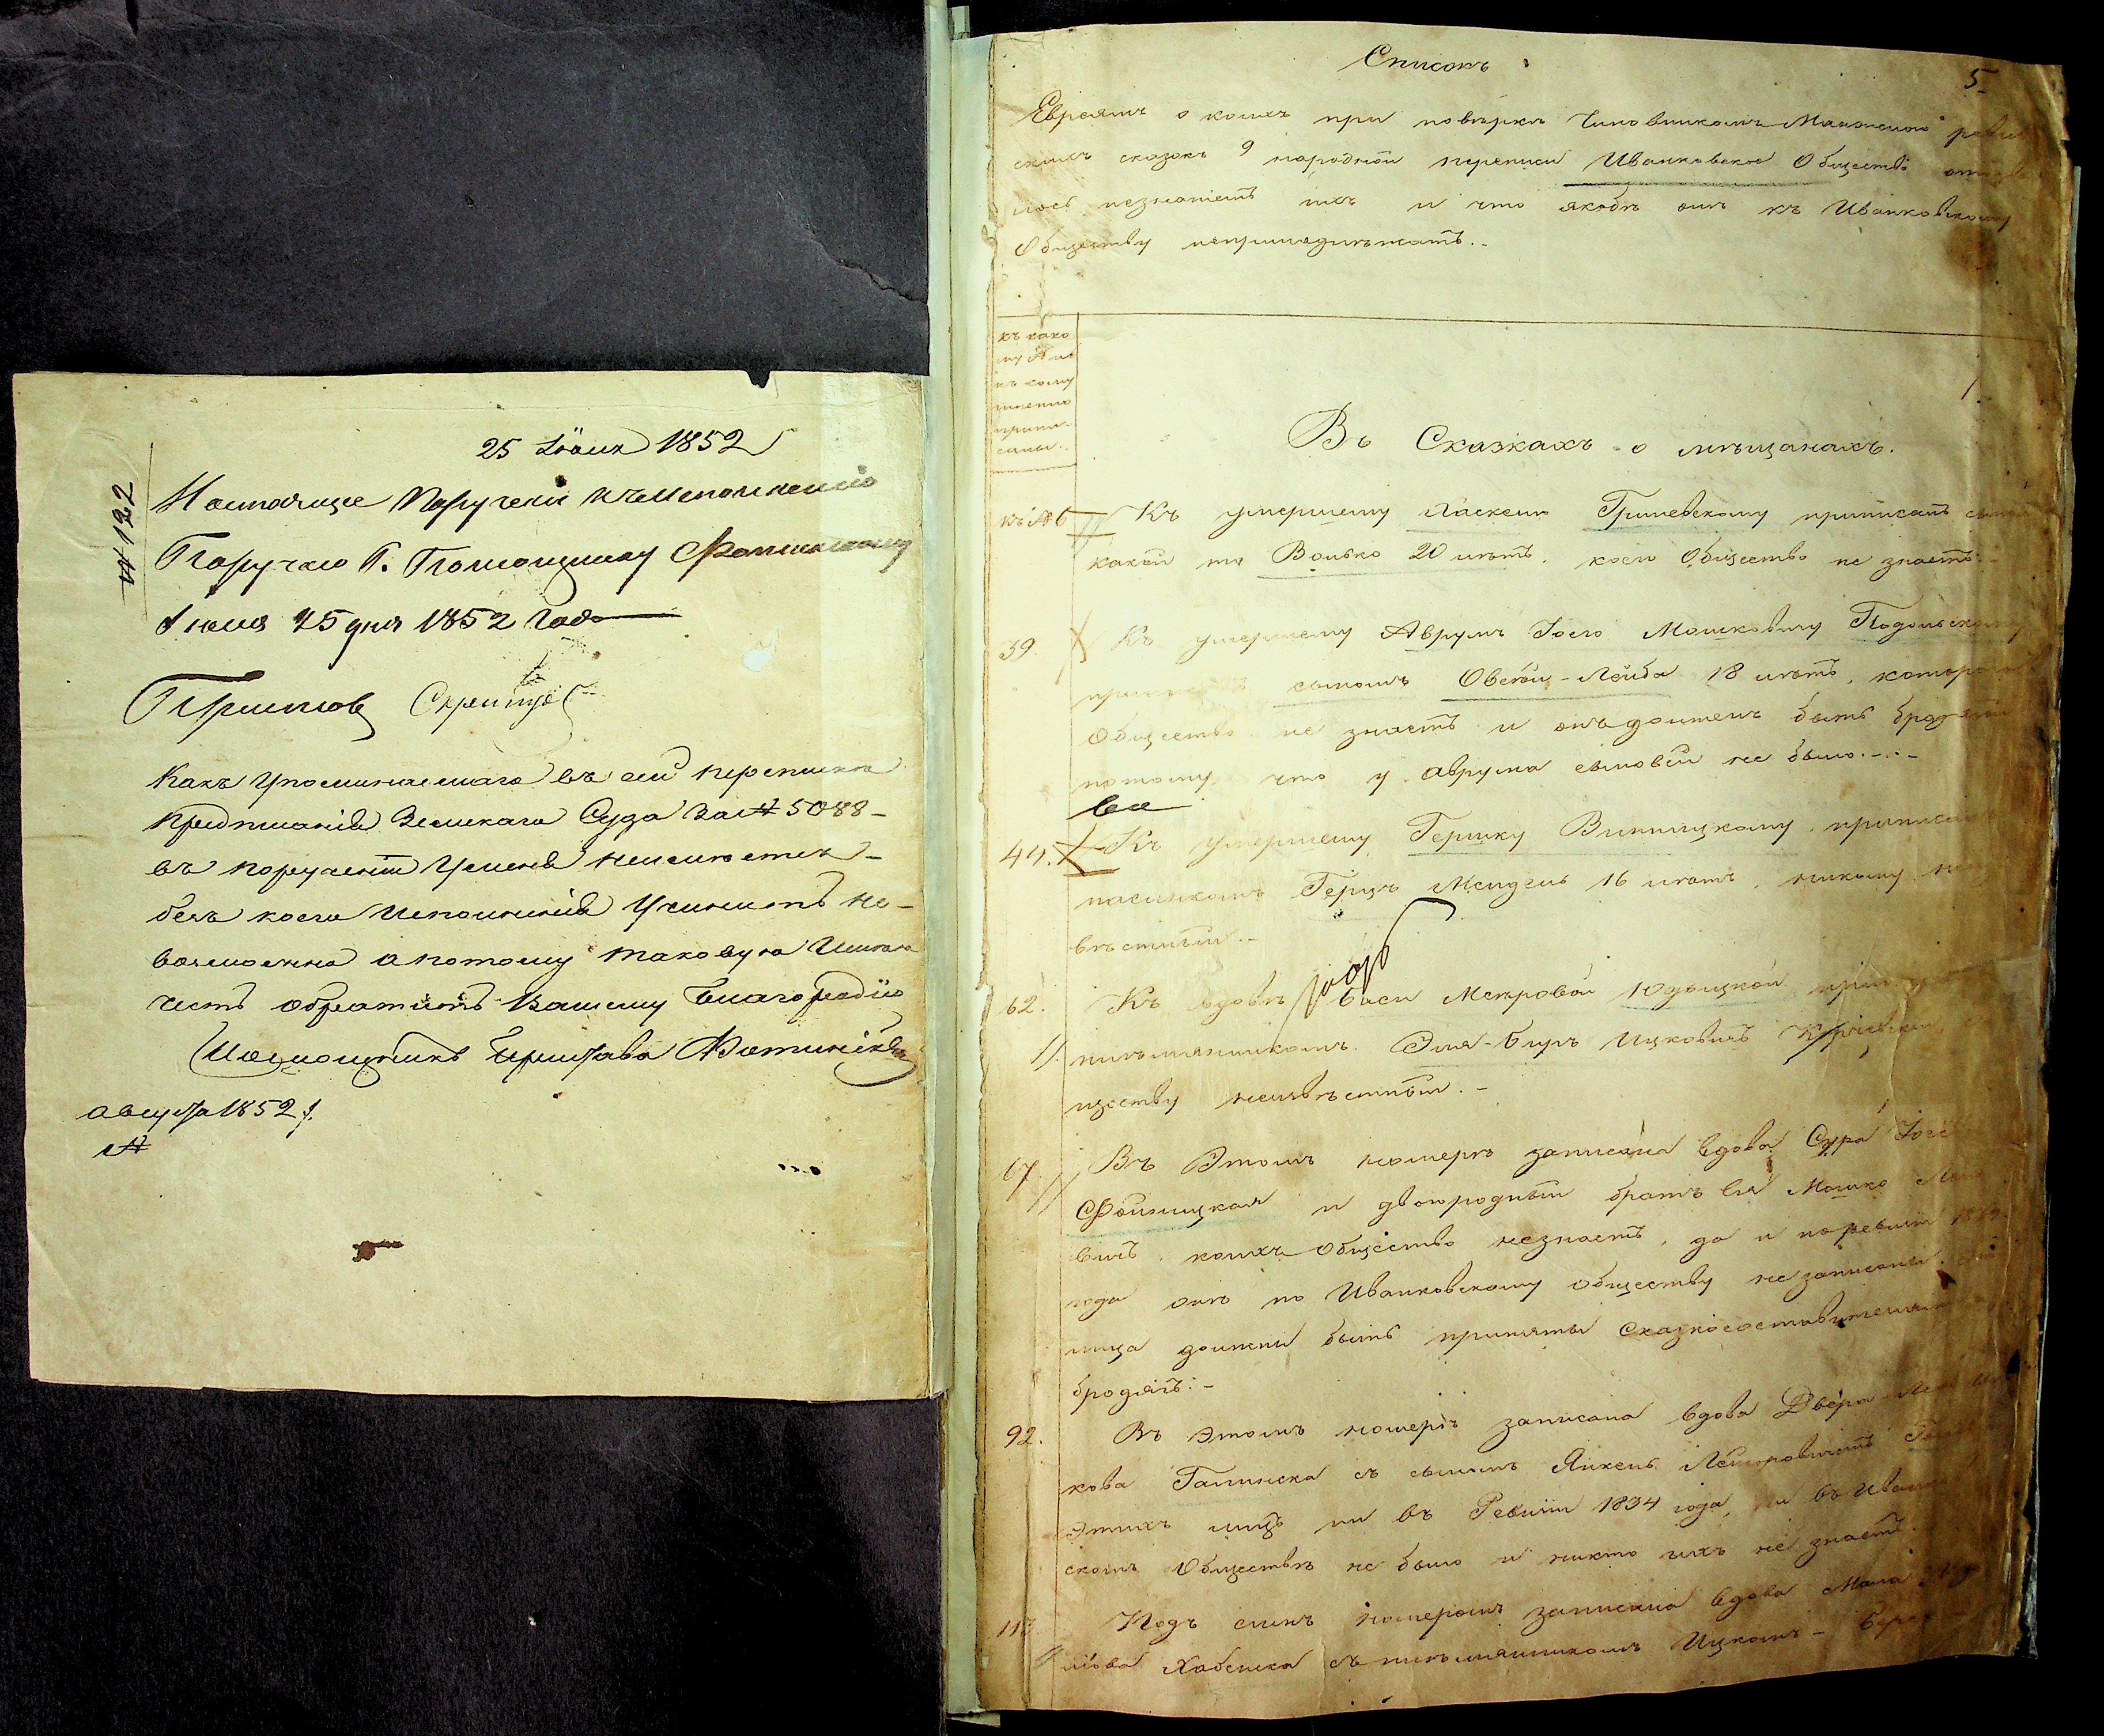 25 Іюля 1852
№ 122
Настоящее Порученіе къ исполненію
Поручаю Г. Помощнику
Іюля 25 дня 1852 Года
Какъ упоминаемаго въ сей перепискѣ
предписанія Земскаго Суда за № 5088 -
въ порученіи у меня неимеется -
безъ коего исполненія учинить не-
возможна а потому таковую имею
честь обратить Вашему Благородію
Помощникъ Пристава
августа 1852 г.
№
5
Списокъ
Евреямъ о коихъ при повѣркѣ Чиновникомъ ревиз
скихъ сказокъ 9 народной переписи Иванковское Общество отозва
лось незнаніемъ ихъ и что якобы они къ Иванковскому
Обществу непринадлѣжатъ. -
къ како
му № и
къ кому
именно
припи
саны.
1.
Въ Сказкахъ о мѣщанахъ.
къ № 6 Къ умершему Хаскелю Гриневскому приписанъ сыномъ
какой то Волько 20 лѣтъ. коего Общество не знаетъ. -
39. Къ умершему Аврумъ Іосю Мошковичу Подольскому
приписанъ сыномъ Овсѣй-Лейба 18 лѣтъ, котораго
Общество не знаетъ и онъ долженъ быть бродяга
потому что у Аврума сыновей не было. -
44. Къ умершему Гершку Винницкому приписанъ
пасынкомъ Герцъ Мендель 16 лѣтъ, никому неиз
вѣстный. -
62. Къ вдовѣ Баси Меировой Юдицкой
племянникомъ Эля-Беръ Ицковичъ
ществу неизвѣстный. -
67. Въ Этомъ номерѣ записана вдова Сура
Фойницкая и двоюродный братъ Ея Мошко
вичъ коихъ Общество незнаетъ, да и по ревизіи
года они по Иванковскому Обществу не записаны.
лица должны быть приняты Сказкосоставителями
бродягъ: -
92. Въ Этомъ номерѣ записана вдова Двера
кова Галинска съ сыномъ Янкель
Этихъ лицъ ни въ Ревизіи 1834 года, ни въ Иванков
скомъ Обществѣ не было и никто ихъ не знаетъ.
113. Подъ симъ номеромъ записана вдова Мала
Хабенска съ племянникомъ Ицкомъ-